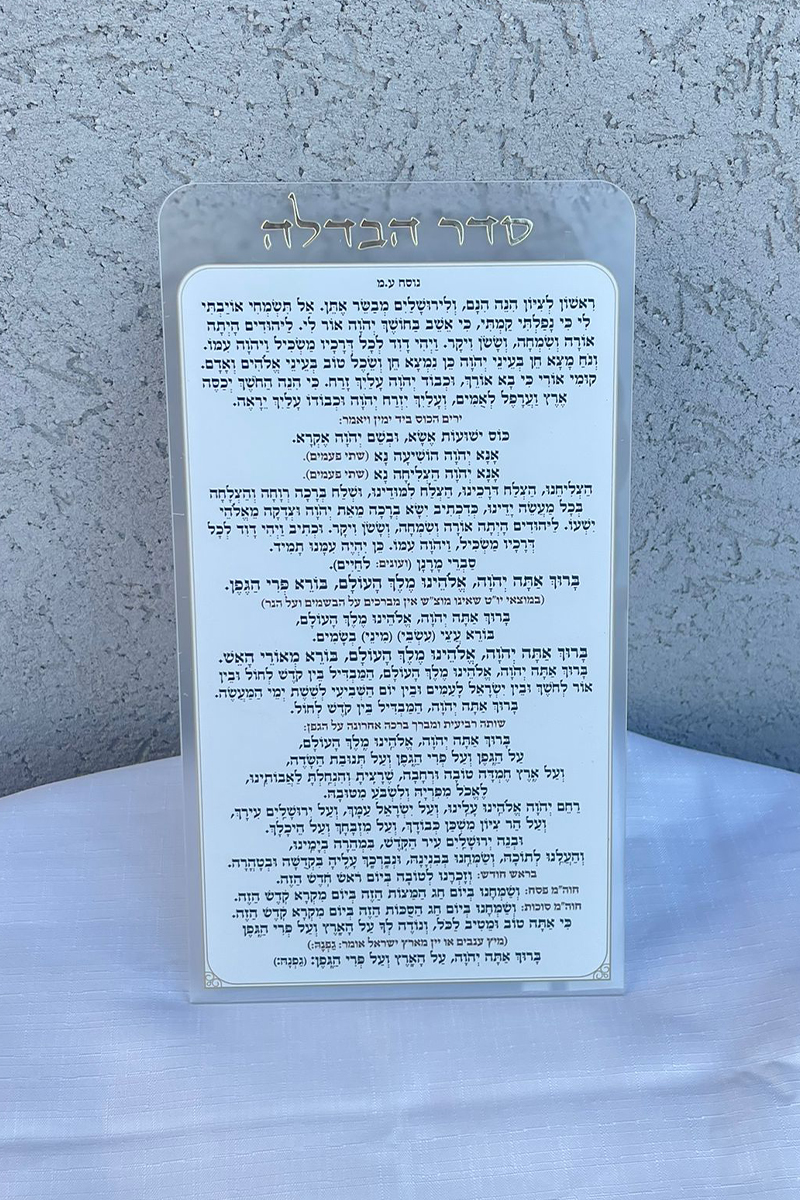 סדר הבדלה
נוסח ע.מ
רִאשׁוֹן לְצִיּוֹן הִנֵּה הִנָּם, וְלִירוּשָׁלַיִם מְבַשֵּׂר אֶתֵּן. אַל תִּשְׂמְחִי אוֹיַבְתִּי
לִי כִּי נָפַלְתִּי קַמְתִּי, כִּי אֵשֵׁב בַּחוֹשֶׁךְ יְהֹוָה אוֹר לִי. לַיְּהוּדִים הָיְתָה
אוֹרָה וְשִׂמְחָה, וְשָׂשֹׂן וִיקָר. וַיְהִי דָוִד לְכָל דְּרָכָיו מַשְׂכִּיל וַיהֹוָה עִמּוֹ.
וְנֹחַ מָצָא חֵן בְּעֵינֵי יְהֹוָה כֵּן נִמְצָא חֵן וְשֵׂכֶל טוֹב בְּעֵינֵי אֱלֹהִים וְאָדָם.
קוּמִי אוֹרִי כִּי בָא אוֹרֵךְ, וּכְבוֹד יְהֹוָה עָלַיִךְ זָרָח. כִּי הִנֵּה הַחֹשֶׁךְ יְכַסֶּה
אֶרֶץ וַעֲרָפֶל לְאֻמִּים, וְעָלַיִךְ יִזְרַח יְהֹוָה וּכְבוֹדוֹ עָלַיִךְ יֵרָאֶה.
ירים הכוס ביד ימין ויאמר:
כּוֹס יְשׁוּעוֹת אֶשָּׂא, וּבְשֵׁם יְהֹוָה אֶקְרָא.
אָנָּא יְהֹוָה הוֹשִׁיעָה נָּא (שתי פעמים).
אָנָּא יְהֹוָה הַצְלִיחָה נָּא (שתי פעמים).
הַצְלִיחֵנוּ, הַצְלַח דְּרָכֵינוּ, הַצְלַח לִמּוּדֵינוּ, וּשְׁלַח בְּרָכָה רְוָחָה וְהַצְלָחָה
בְּכָל מַעֲשֵׂה יָדֵינוּ, כְּדִכְתִיב יִשָּׂא בְרָכָה מֵאֵת יְהֹוָה וּצְדָקָה מֵאֱלֹהֵי
יִשְׁעוֹ. לַיְּהוּדִים הָיְתָה אוֹרָה וְשִׂמְחָה, וְשָׂשֹׂן וִיקָר. וּכְתִיב וַיְהִי דָוִד לְכָל
דְּרָכָיו מַשְׂכִּיל, וַיהֹוָה עִמּוֹ. כֵּן יִהְיֶה עִמָּנוּ תָּמִיד.
סַבְרִי מָרָנָן (ועונים: לחיים).
בָּרוּךְ אַתָּה יְהֹוָה, אֱלֹהֵינוּ מֶלֶךְ הָעוֹלָם, בּוֹרֵא פְּרִי הַגֶּפֶן.
(במוצאי יו"ט שאינו מוצ"ש אין מברכים על הבשמים ועל הנר)
בָּרוּךְ אַתָּה יְהֹוָה, אֱלֹהֵינוּ מֶלֶךְ הָעוֹלָם,
בּוֹרֵא עֲצֵי (עִשְׂבֵי) (מִינֵי) בְשָׂמִים.
בָּרוּךְ אַתָּה יְהֹוָה, אֱלֹהֵינוּ מֶלֶךְ הָעוֹלָם, בּוֹרֵא מְאוֹרֵי הָאֵשׁ.
בָּרוּךְ אַתָּה יְהֹוָה, אֱלֹהֵינוּ מֶלֶךְ הָעוֹלָם, הַמַּבְדִּיל בֵּין קֹדֶשׁ לְחוֹל וּבֵין
אוֹר לְחֹשֶׁךְ וּבֵין יִשְׂרָאֵל לָעַמִּים וּבֵין יוֹם הַשְּׁבִיעִי לְשֵׁשֶׁת יְמֵי הַמַּעֲשֶׂה.
בָּרוּךְ אַתָּה יְהֹוָה, הַמַּבְדִּיל בֵּין קֹדֶשׁ לְחוֹל.
שותה רביעית ומברך ברכה אחרונה על הגפן:
בָּרוּךְ אַתָּה יְהֹוָה, אֱלֹהֵינוּ מֶלֶךְ הָעוֹלָם,
עַל הַגֶּפֶן וְעַל פְּרִי הַגֶּפֶן וְעַל תְּנוּבַת הַשָּׂדֶה,
וְעַל אֶרֶץ חֶמְדָּה טוֹבָה וּרְחָבָה, שֶׁרָצִיתָ וְהִנְחַלְתָּ לַאֲבוֹתֵינוּ,
לֶאֱכֹל מִפִּרְיָהּ וְלִשְׂבֹּעַ מִטּוּבָהּ.
רַחֵם יְהֹוָה אֱלֹהֵינוּ עָלֵינוּ, וְעַל יִשְׂרָאֵל עַמָּךְ, וְעַל יְרוּשָׁלַיִם עִירָךְ,
וְעַל הַר צִיּוֹן מִשְׁכַּן כְּבוֹדָךְ, וְעַל מִזְבָּחָךְ וְעַל הֵיכָלָךְ.
וּבְנֵה יְרוּשָׁלַיִם עִיר הַקֹּדֶשׁ, בִּמְהֵרָה בְיָמֵינוּ,
וְהַעֲלֵנוּ לְתוֹכָהּ, וְשַׂמְּחֵנוּ בְּבִנְיָנָהּ, וּנְבָרְכָךְ עָלֶיהָ בִּקְדֻשָּׁה וּבְטָהֳרָה.
בראש חודש: וְזָכְרֵנוּ לְטוֹבָה בְּיוֹם רֹאשׁ חֹדֶשׁ הַזֶּה.
חוה"מ פסח: וְשַׂמְּחֵנוּ בְּיוֹם חַג הַמַּצּוֹת הַזֶּה בְּיוֹם מִקְרָא קֹדֶשׁ הַזֶּה.
חוה"מ סוכות: וְשַׂמְּחֵנוּ בְּיוֹם חַג הַסֻּכּוֹת הַזֶּה בְּיוֹם מִקְרָא קֹדֶשׁ הַזֶּה.
כִּי אַתָּה טוֹב וּמֵטִיב לַכֹּל, וְנוֹדֶה לְּךָ עַל הָאָרֶץ וְעַל פְּרִי הַגֶּפֶן
(מיץ ענבים או יין מארץ ישראל אומר: גַּפְנָהּ:)
בָּרוּךְ אַתָּה יְהֹוָה, עַל הָאָרֶץ וְעַל פְּרִי הַגֶּפֶן: (גַּפְנָהּ:)